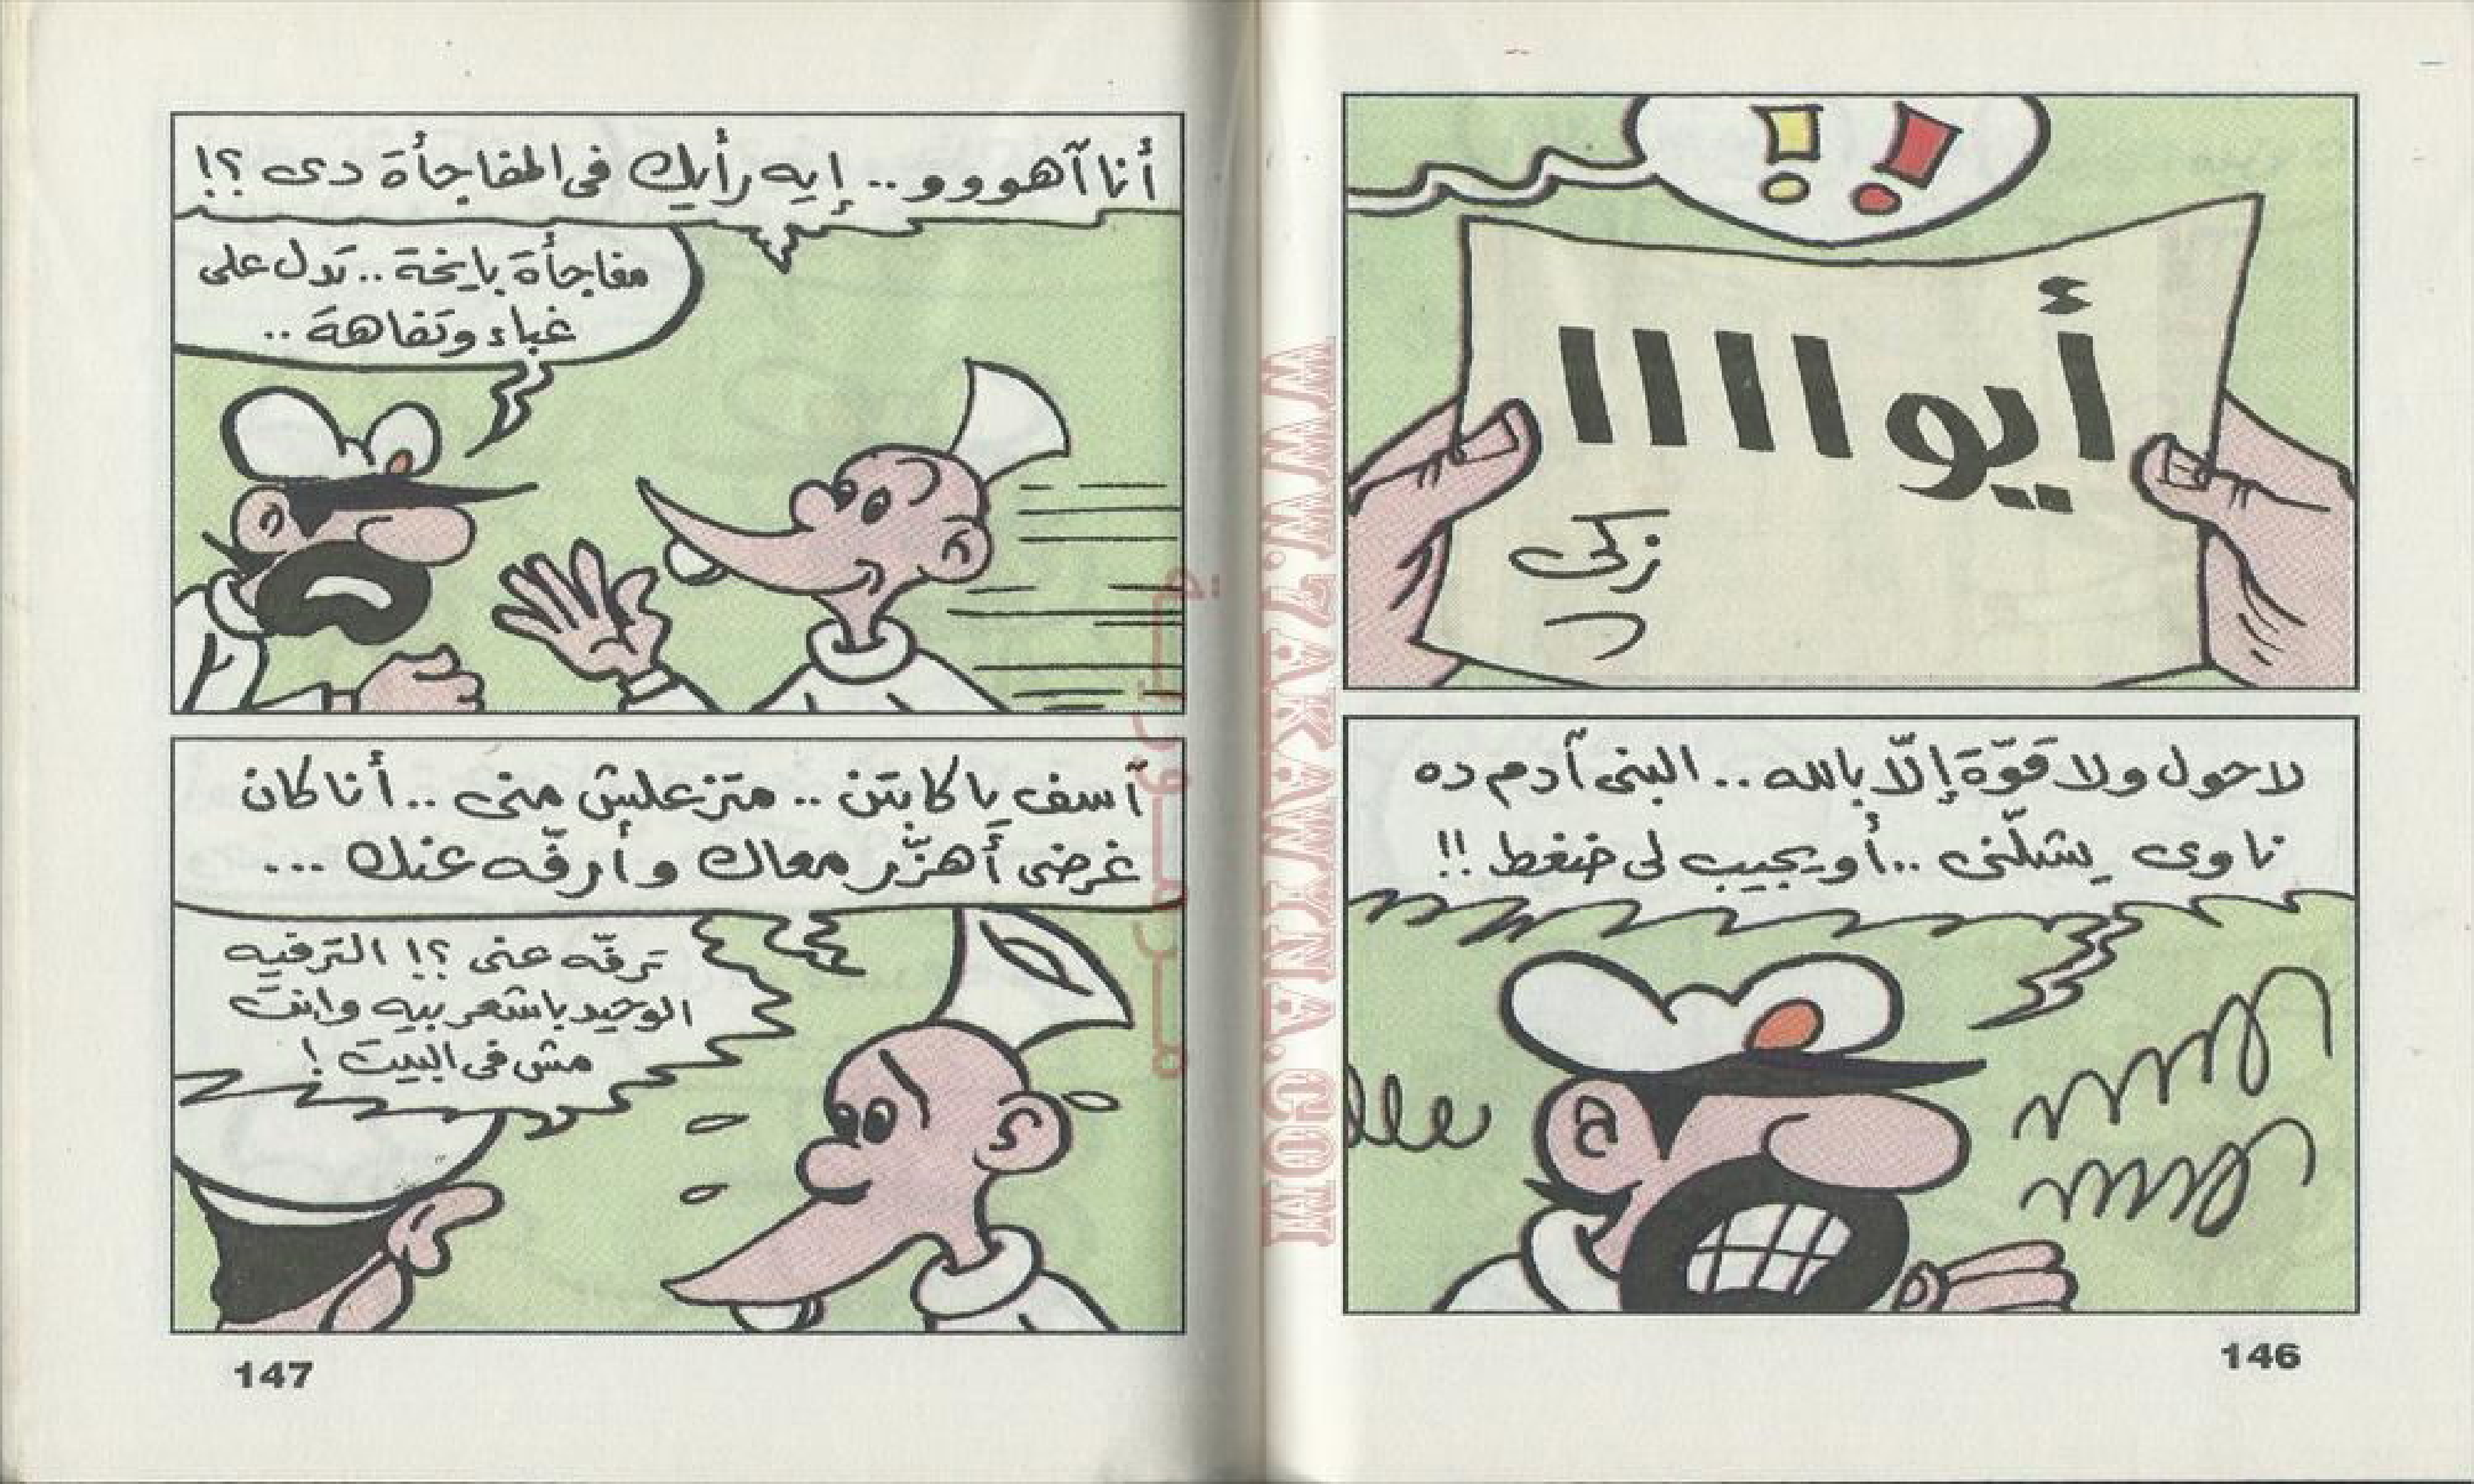 !!
أيواااا
زكى
لا حول ولا قوّة إلّا بالله.. البنى آدم ده
ناوى يشلّنى.. أو يجيب لى ضغط!!
146
أنا آهووو.. إيه رأيك فى المفاجأة دى؟!
مفاجأة بايخة.. تدل على
غباء وتفاهة..
آسف ياكابتن.. متزعليش منى.. أنا كان
غرضى أهزّر معاك وأرفّه عنك...
ترفّه عنى؟! الترفيه
الوحيد باشعر بيه وانت
مش فى البيت!
147
WWW.7AKAWYNA.COM